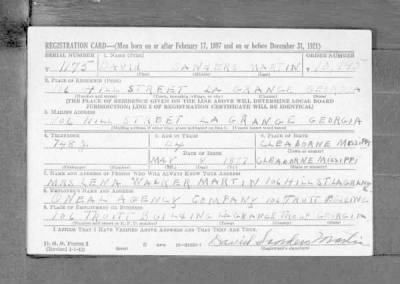 REGISTRATION CARD—(Men born on or after February 17, 1897 and on or before December 31, 1921)
SERIAL NUMBER 1. NAME (Print) ORDER NUMBER
1175 DAVID SANDERS MARTIN
(First) (Middle) (Last)
2. PLACE OF RESIDENCE (Print)
106 HILL STREET LA GRANGE GEORGIA
(Number and street) (Town, township, village, or city) (County) (State)
[THE PLACE OF RESIDENCE GIVEN ON THE LINE ABOVE WILL DETERMINE LOCAL BOARD
JURISDICTION; LINE 2 OF REGISTRATION CERTIFICATE WILL BE IDENTICAL]
3. MAILING ADDRESS
106 HILL STREET LA GRANGE GEORGIA
[Mailing address if other than place indicated on line 2. If same insert word same]
4. TELEPHONE 5. AGE IN YEARS 6. PLACE OF BIRTH
748 J 44 CLEABORNE MISSIPPI
DATE OF BIRTH
MAY 8 1897 CLEABORNE MISSIPPI
7. NAME AND ADDRESS OF PERSON WHO WILL ALWAYS KNOW YOUR ADDRESS
MRS LENA WALKER MARTIN 106 HILL ST LAGRANGE
8. EMPLOYER'S NAME AND ADDRESS
ONEAL AGENCY COMPANY 106 TRUITT BUILDING
9. PLACE OF EMPLOYMENT OR BUSINESS
106 TRUITT BUILDING LAGRANGE TROUP GEORGIA
I AFFIRM THAT I HAVE VERIFIED ABOVE ANSWERS AND THAT THEY ARE TRUE.
D. S. S. Form 1
(Revised 1-1-42) (over) David Sanders Martin
(Registrant's signature)